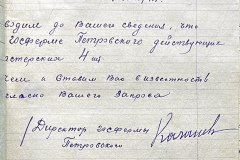 водим до Вашего сведения, что
Госферме Петровского действующих
4 шт.
чем и ставим Вас в известность
гласно Вашего Запроса
Директор Госфермы
Петровского